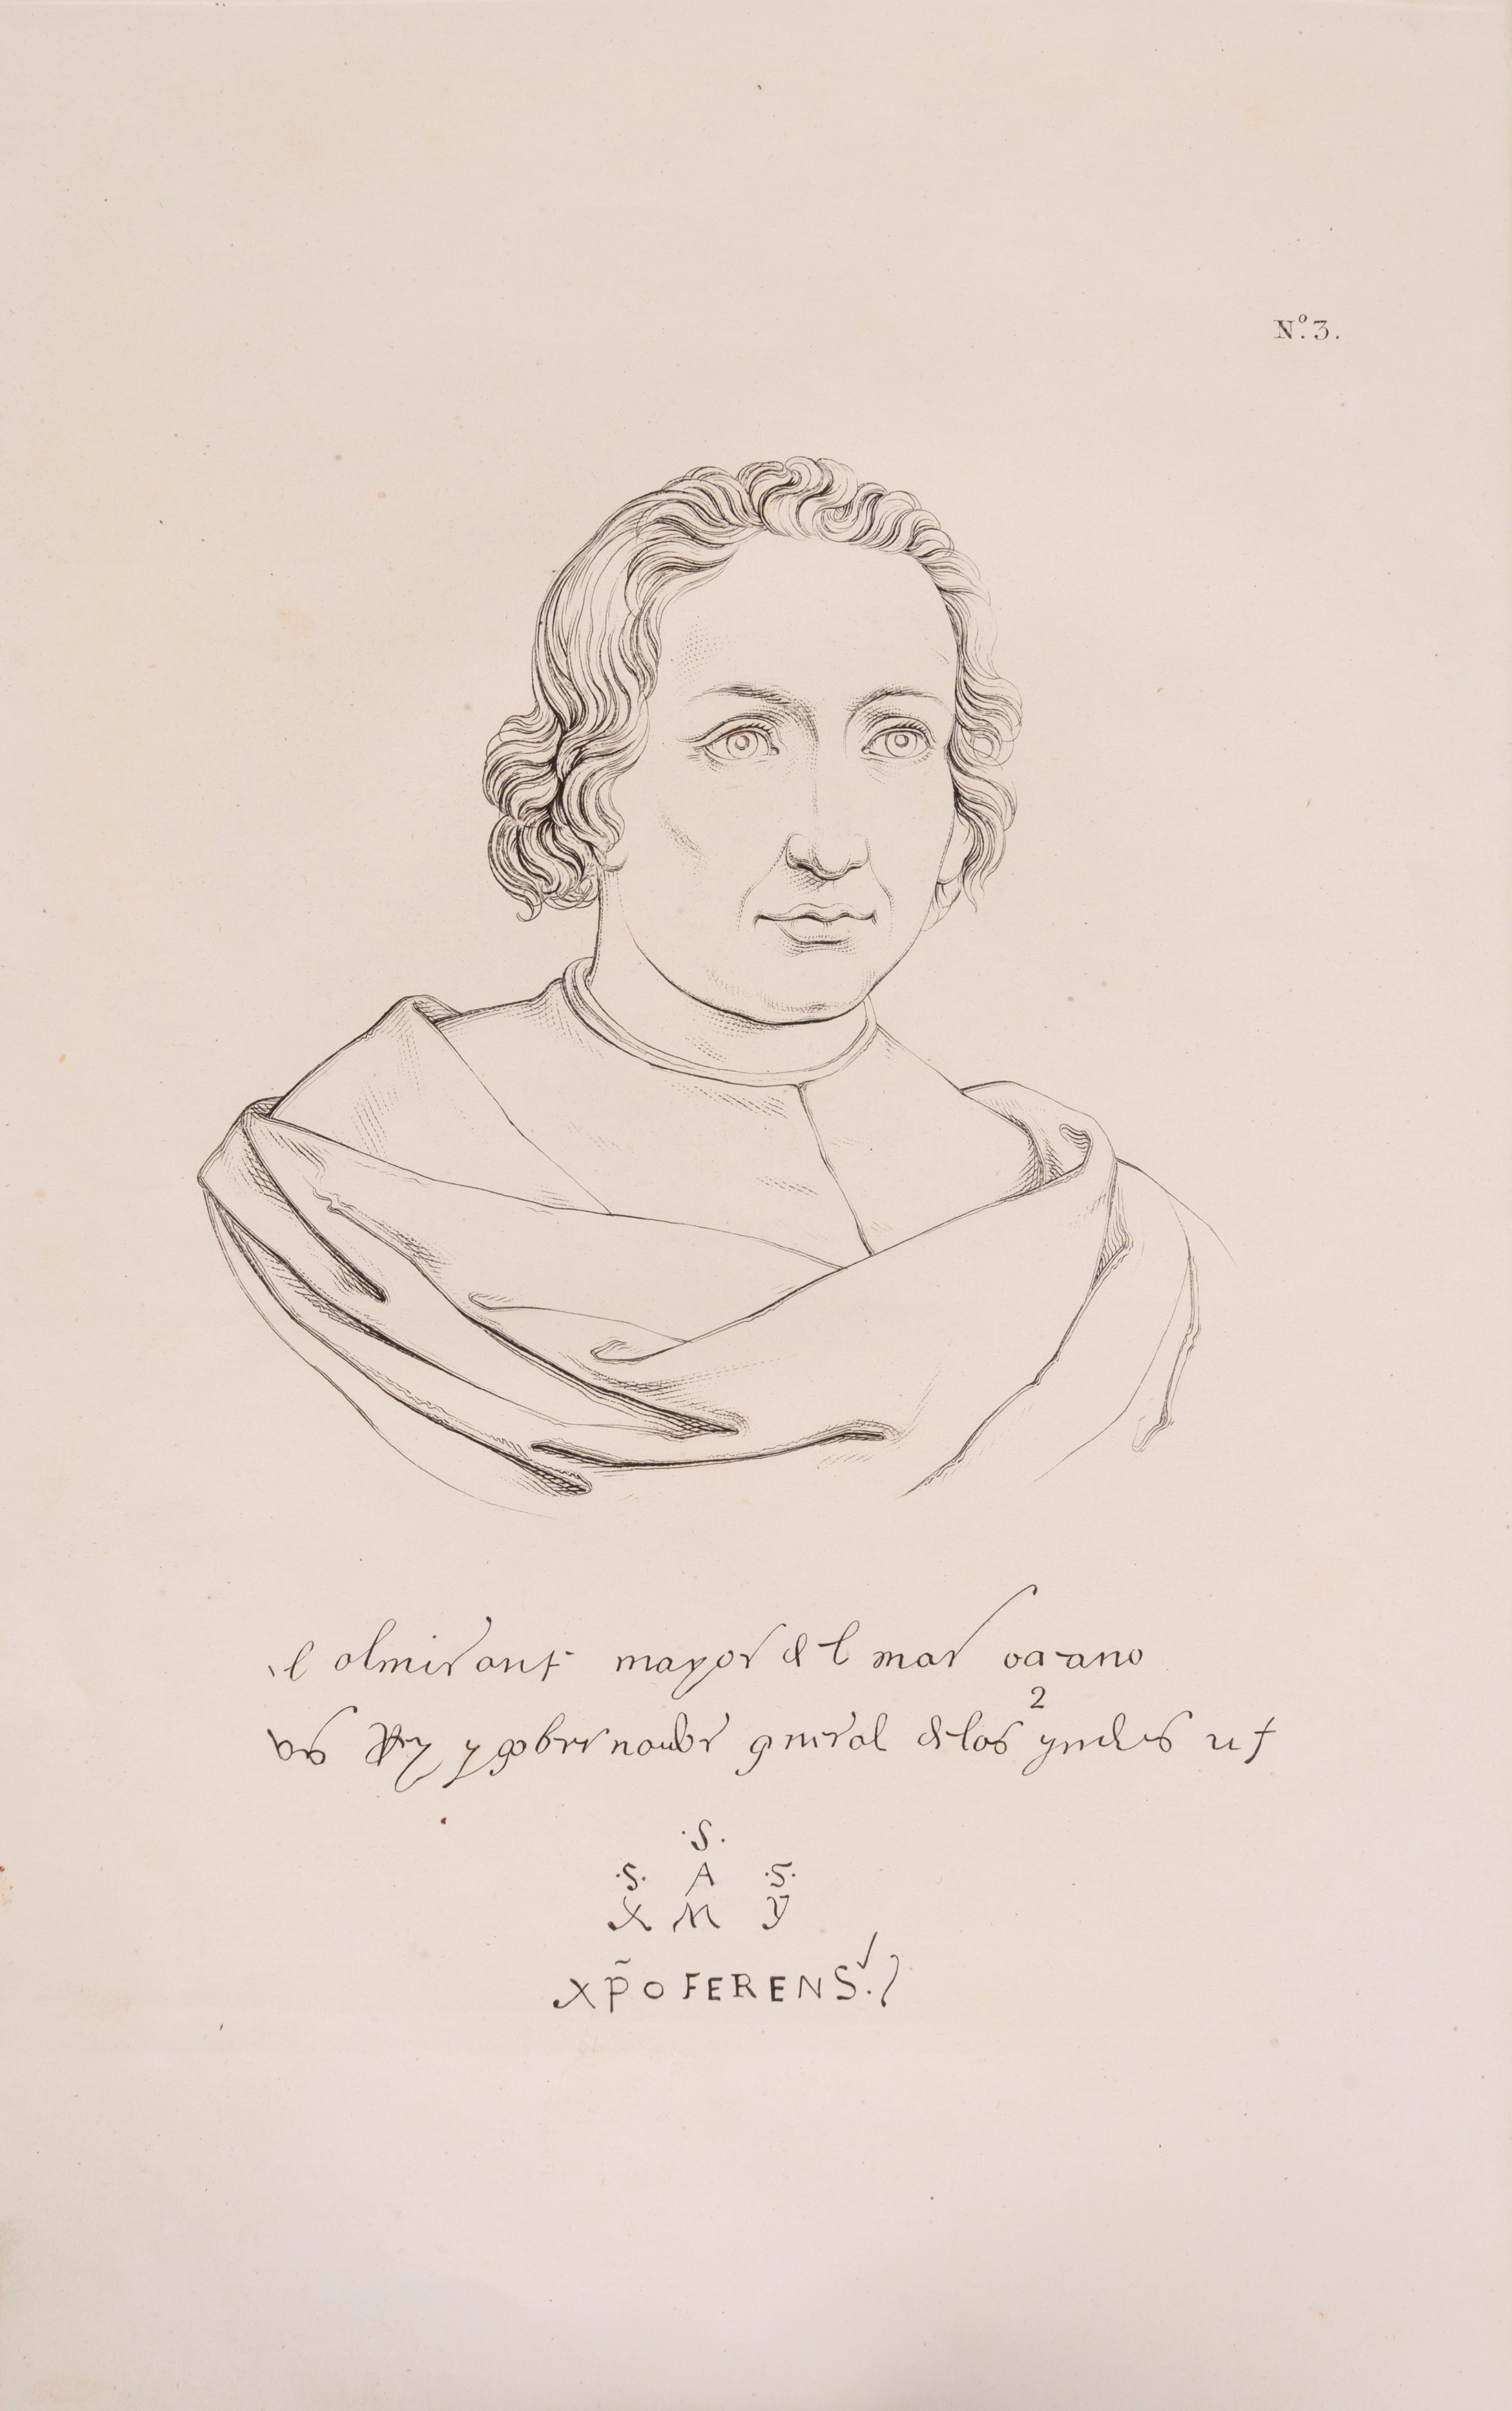 Nº. 3.
el almirante mayor del mar oceano
2
vis Rey y gobernador general de las yndias
.S.
.S. A .S.
X M Y
Xp̃o FERENS./